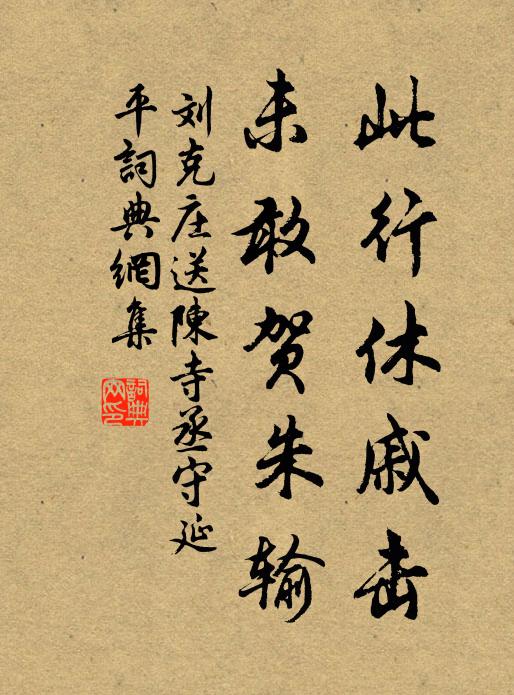 此行休戚击
未敢贺朱输
刘克庄送陳寺丞守延
平詞典網集
詞典
网印